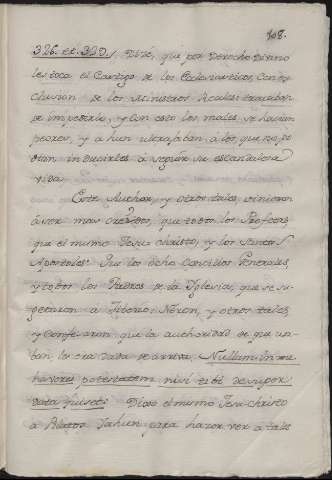 108.
326. et. 329./ Dize, que por Derecho Divino
les toca el Castigo de los Eclesiasticos, con ex
clusion de los Ministros Reales trataban
de impedirlo, y con esto los males se hacian
peores, y aun ultrajaban à los que no po
dian inducirles à seguir su escandalosa
vida.
Este Author, y otros tales, vinieron
à ser mas creidos, que todos los Profetas,
que el mismo Jesu christo, y los Santos
Apostoles: Que los ocho Concilios Generales,
y todos los Padres de la Iglesia, que se su
getaron à Tiberio Neron, y otros tales,
y confesaron que la authoridad de que usa
ban les era dada de arriba. Nullam in me
haveres potestatem nisi tibi desuper
data fuiset: Dijo el mismo Jesu-christo
a Pilatos para hacer ver à tales